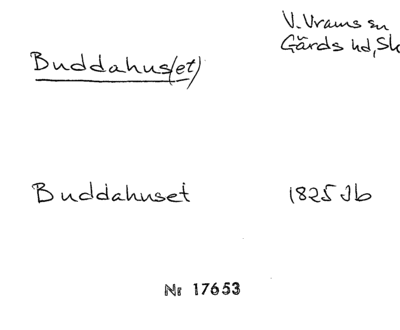 V. Vrams sn
Buddahus(et)
Gärds hd, Sk
Buddahuset 1825 Jb
Nr 17653